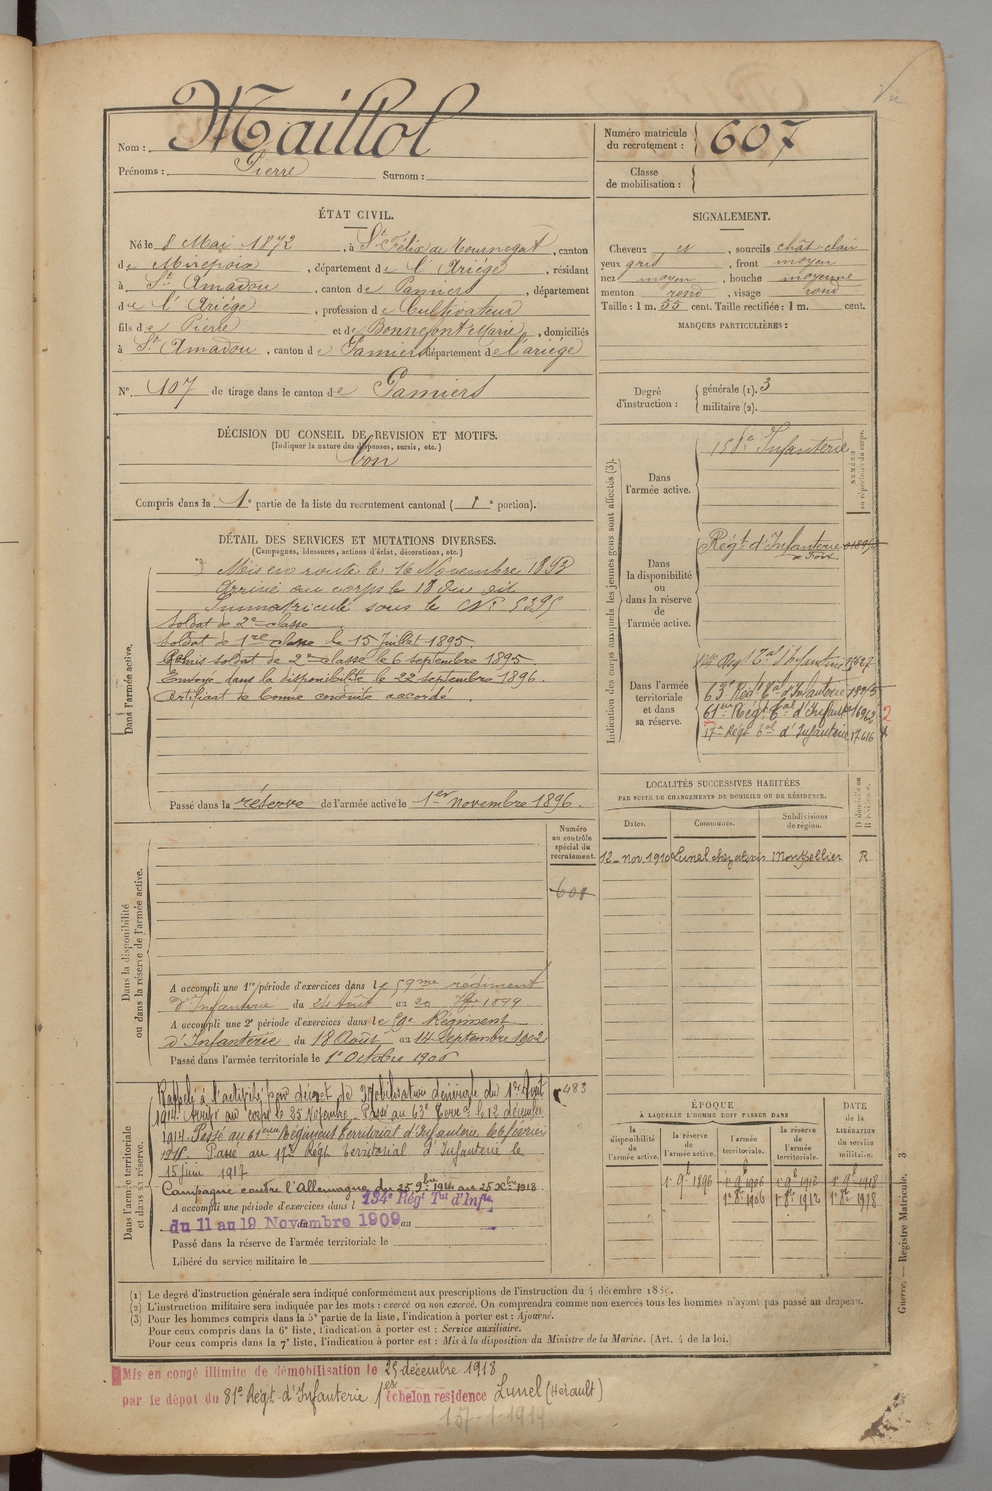 Nom : Maillol
Prénoms : Pierre Surnom :
Numéro matricule du recrutement : 607
Classe de mobilisation :
ÉTAT CIVIL.
Né le 8 Mai 1872, à St Félix de Tournegat, canton
de Mirepoix, département de l'Ariège, résidant
à St Amadou, canton de Pamiers, département
de l'Ariège, profession de Cultivateur
fils de Pierre et de Bonnefont Marie, domiciliés
à St Amadou, canton de Pamiers département de l'ariège
No. 107 de tirage dans le canton de Pamiers
SIGNALEMENT.
Cheveux et, sourcils chât clair
yeux gris, front moyen
nez moyen, bouche moyenne
menton rond, visage rond
Taille : 1 m. 55 cent. Taille rectifiée : 1 m. cent.
MARQUES PARTICULIÈRES :
Degré d'instruction : générale (1). 3
militaire (2).
DÉCISION DU CONSEIL DE REVISION ET MOTIFS.
(Indiquer la nature des dispenses, sursis, etc.)
bon
Compris dans la 1e partie de la liste du recrutement cantonal ( 1e portion).
DÉTAIL DES SERVICES ET MUTATIONS DIVERSES.
(Campagnes, blessures, actions d'éclat, décorations, etc.)
Dans l'armée active.
Mis en route le 16 Novembre 1893
Arrivé au corps le 18 du dit
Immatriculé sous le No 5395
Soldat de 2e classe
Soldat de 1re classe le 15 Juillet 1895.
Remis soldat de 2e classe le 6 septembre 1895.
Envoyé dans la disponibilité le 22 septembre 1896.
Certificat de bonne conduite accordé
Passé dans la réserve de l'armée active le 1er novembre 1896.
Indication des corps auxquels les jeunes gens sont affectés (3).
NUMÉRO au répertoire du corps.
Dans l'armée active.
Infanterie
Dans la disponibilité ou dans la réserve de l'armée active.
Régt d'Infanterie
Foix
Dans l'armée territoriale et dans sa réserve.
63e Régt Tal d'Infanterie
61me Régt Tal d'Infanterie 16962
17e Régt Tal d'Infanterie 17616
LOCALITÉS SUCCESSIVES HABITÉES
PAR SUITE DE CHANGEMENTS DE DOMICILE OU DE RÉSIDENCE.
Dates. Communes. Subdivisions de région. D domicile ou R résidence.
12 nov. 1910 Lunel Montpellier R
Numéro au contrôle spécial du recrutement.
601
Dans la disponibilité ou dans la réserve de l'armée active.
A accompli une 1re période d'exercices dans le 59me régiment
d'Infanterie du 24 Août au 20 7bre 1899
A accompli une 2e période d'exercices dans le 59e Régiment
d'Infanterie du 18 Août au 14 Septembre 1902
Passé dans l'armée territoriale le 1er Octobre 1906
Dans l'armée territoriale et dans sa réserve.
Rappelé à l'activité par décret de Mobilisation Générale du 1er Août
1914. Arrivé au corps le 25 Novembre. Passé au 63e Terral le 12 décembre
1914. Passé au 61eme Régiment Territorial d'Infanterie le 6 février
Passé au 17e Régt territorial d'Infanterie le
15 juin 1917
Campagne contre l'Allemagne du 25 9bre 1914 au 25 Xbre 1918
483
A accompli une période d'exercices dans l 134e Régt Tal d'Inf
du 11 au 19 Novembre 1909 au
Passé dans la réserve de l'armée territoriale le
Libéré du service militaire le
ÉPOQUE
A LAQUELLE L'HOMME DOIT PASSER DANS
DATE DE LA LIBÉRATION du service militaire.
la disponibilité de l'armée active. la réserve de l'armée active. l'armée territoriale. la réserve de l'armée territoriale.
1er 9b 1896 1er 9 1906 1er 9b 1912 1er 9b 1918
1er 8bre 1906 1er 8bre 1912 1er 8bre 1918
(1) Le degré d'instruction générale sera indiqué conformément aux prescriptions de l'instruction du 4 décembre 1889.
(2) L'instruction militaire sera indiquée par les mots : exercé ou non exercé. On comprendra comme non exercés tous les hommes n'ayant pas passé au drapeau.
(3) Pour les hommes compris dans la 5e partie de la liste, l'indication à porter est : Ajourné.
Pour ceux compris dans la 6e liste, l'indication à porter est : Service auxiliaire.
Pour ceux compris dans la 7e liste, l'indication à porter est : Mis à la disposition du Ministre de la Marine. (Art. 4 de la loi.)
Guerre. — Registre Matricule. 3
Mis en congé illimité de démobilisation le 25 décembre 1918
par le dépôt du 81e Régt d'Infanterie 1er échelon résidence Lunel (Hérault)